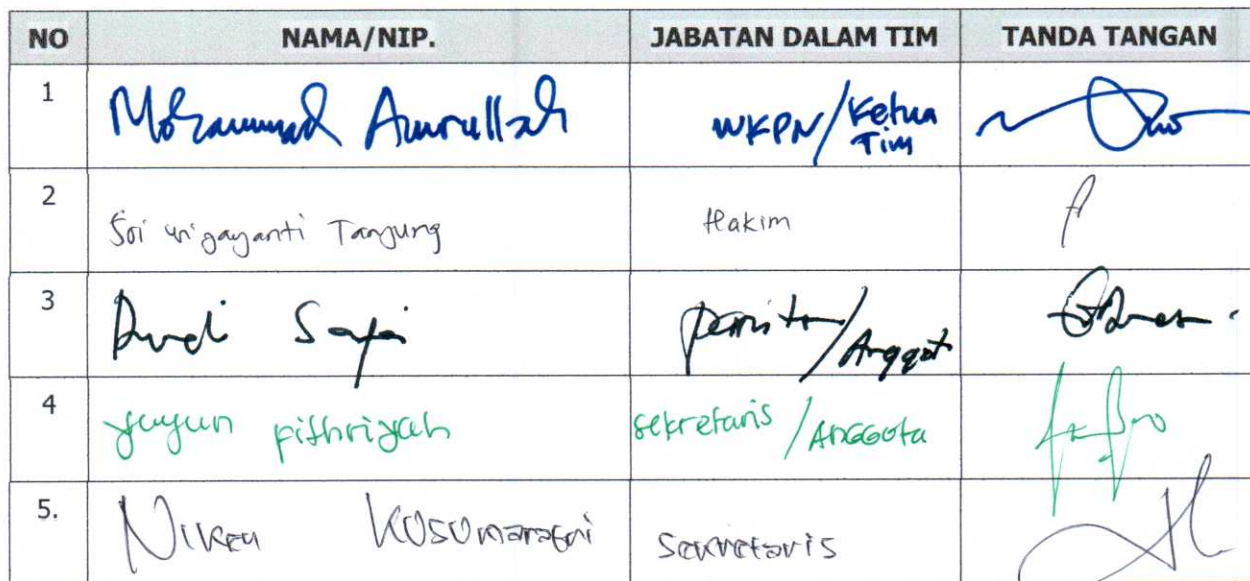 NO NAMA/NIP. JABATAN DALAM TIM TANDA TANGAN
1 Mohammad Amrullah WKPN/Ketua Tim
2 Sri Wigayanti Tanjung Hakim
3 Dudi Panitra/Anggot
4 Yuyun Fithriyah Sekretaris / Anggota
5. Niken Kusumaratri Sekretaris